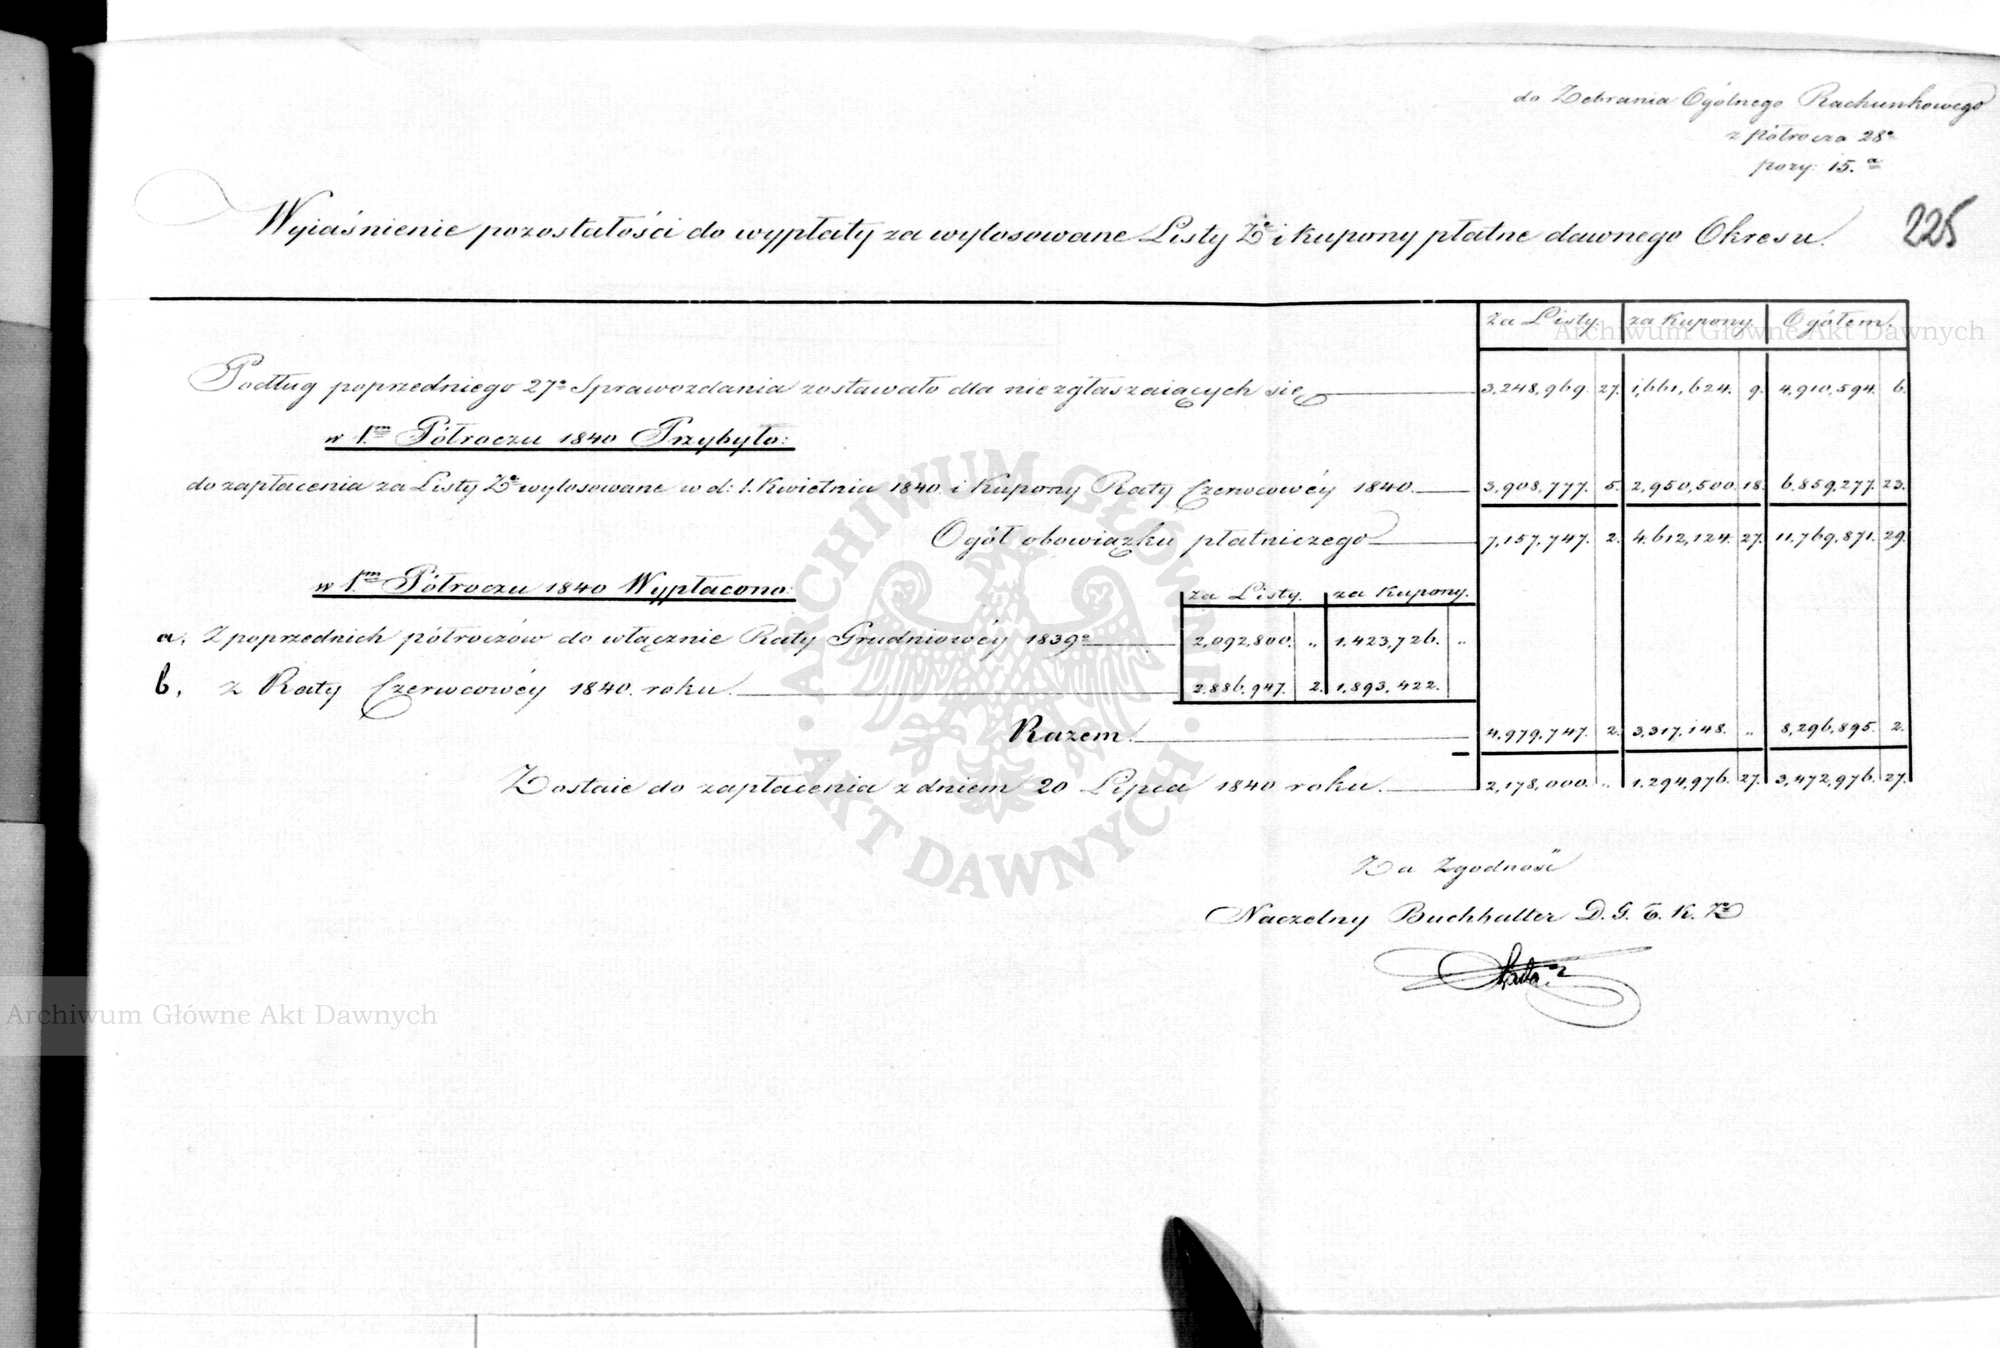 do Zebrania Ogólnego Rachunkowego
z półrocza 28º
pozy: 15.ª
225
Wyiaśnienie pozostałości do wypłaty za wylosowane Listy Zº i kupony płatne dawnego Okresu.
za Listy. za kupony. Ogółem.
Podług poprzedniego 27º Sprawozdania zostawało dla niezgłaszaiących się 3,248,969. 27. 1,661,624. 9. 4,910,594. 6.
w 1.m Półroczu 1840 Przybyło:
do zapłacenia za Listy Zº wylosowane w d: 1. Kwietnia 1840. i Kupony Raty Czerwcowéy 1840. 3,908,777. 5. 2,950,500. 18. 6,859,277. 23.
Ogół obowiązku płatniczego 7,157,747. 2. 4,612,124. 27. 11,769,871. 29.
w 1.m Półroczu 1840 Wypłacono:
za Listy. za Kupony.
a, Z poprzednich półroczów do włącznie Raty Grudniowéy 1839º 2,092,800. „ 1,423,726. „
b, z Raty Czerwcowéy 1840. roku. 2,886,947. 2. 1,893,422.
Razem. 4,979,747. 2. 3,317,148. „ 8,296,895. 2.
Zostaie do zapłacenia z dniem 20 Lipca 1840 roku. 2,178,000. „ 1,294,976. 27. 3,472,976. 27.
Za Zgodność
Naczelny Buchhalter D. G. T. K. Zº
Archiwum Główne Akt Dawnych
Archiwum Główne Akt Dawnych
ARCHIWUM GŁÓWNE · AKT DAWNYCH ·